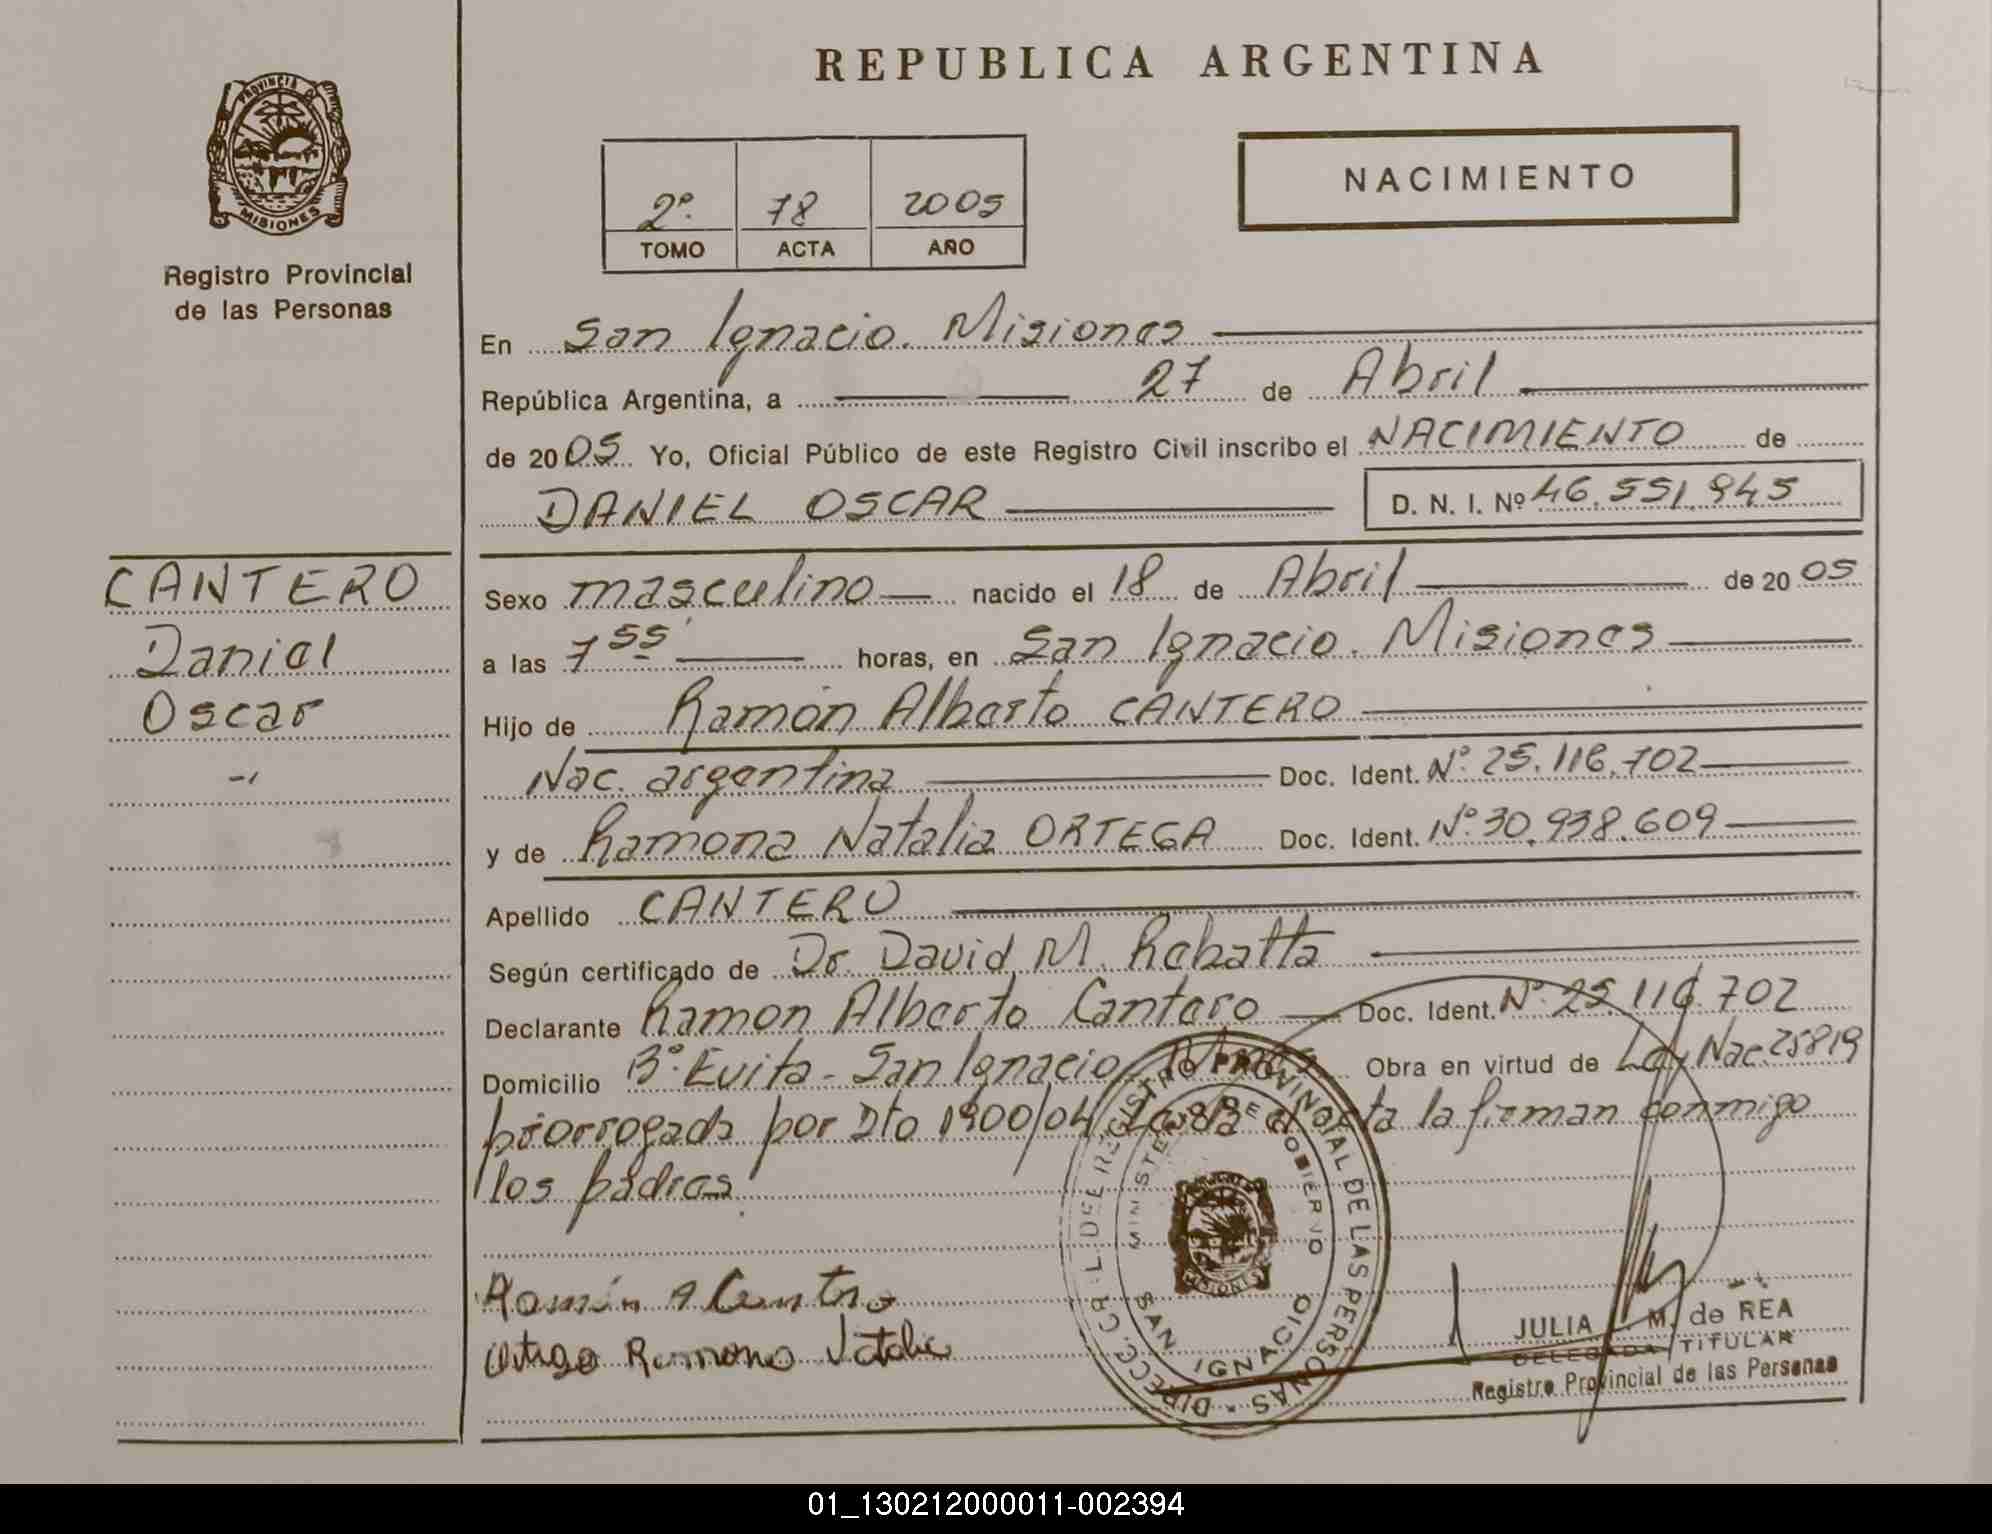 REPUBLICA ARGENTINA
PROVINCIA DE
MISIONES
Registro Provincial
de las Personas
NACIMIENTO
2º. 78 2005
TOMO ACTA AÑO
En San Ignacio. Misiones
República Argentina, a 27 de Abril
de 2005 Yo, Oficial Público de este Registro Civil inscribo el NACIMIENTO de
DANIEL OSCAR D. N. I. Nº 46.551.945
CANTERO
Daniel
Oscar
Sexo masculino nacido el 18 de Abril de 2005
a las 7 55' horas, en San Ignacio. Misiones
Hijo de Ramón Alberto CANTERO
Nac. argentina Doc. Ident. Nº. 25.116.702
y de Ramona Natalia ORTEGA Doc. Ident. Nº. 30.938.609
Apellido CANTERO
Según certificado de Dr. David M. Rebatta
Declarante Ramon Alberto Cantero Doc. Ident. Nº. 25.116.702
Domicilio Bº. Evita - San Ignacio Mnes Obra en virtud de Ley Nac. 25819
prorrogada por Dto 1900/04 Leida el acta la firman conmigo
los padres
Ramón A Cantero
Ortega Ramona Natalia
DIRECC. GRL. DE REGISTRO PROVINCIAL DE LAS PERSONAS
MINISTERIO DE GOBIERNO
SAN IGNACIO
MISIONES
JULIA M. de REA
DELEGADA TITULAR
Registro Provincial de las Personas
01_130212000011-002394